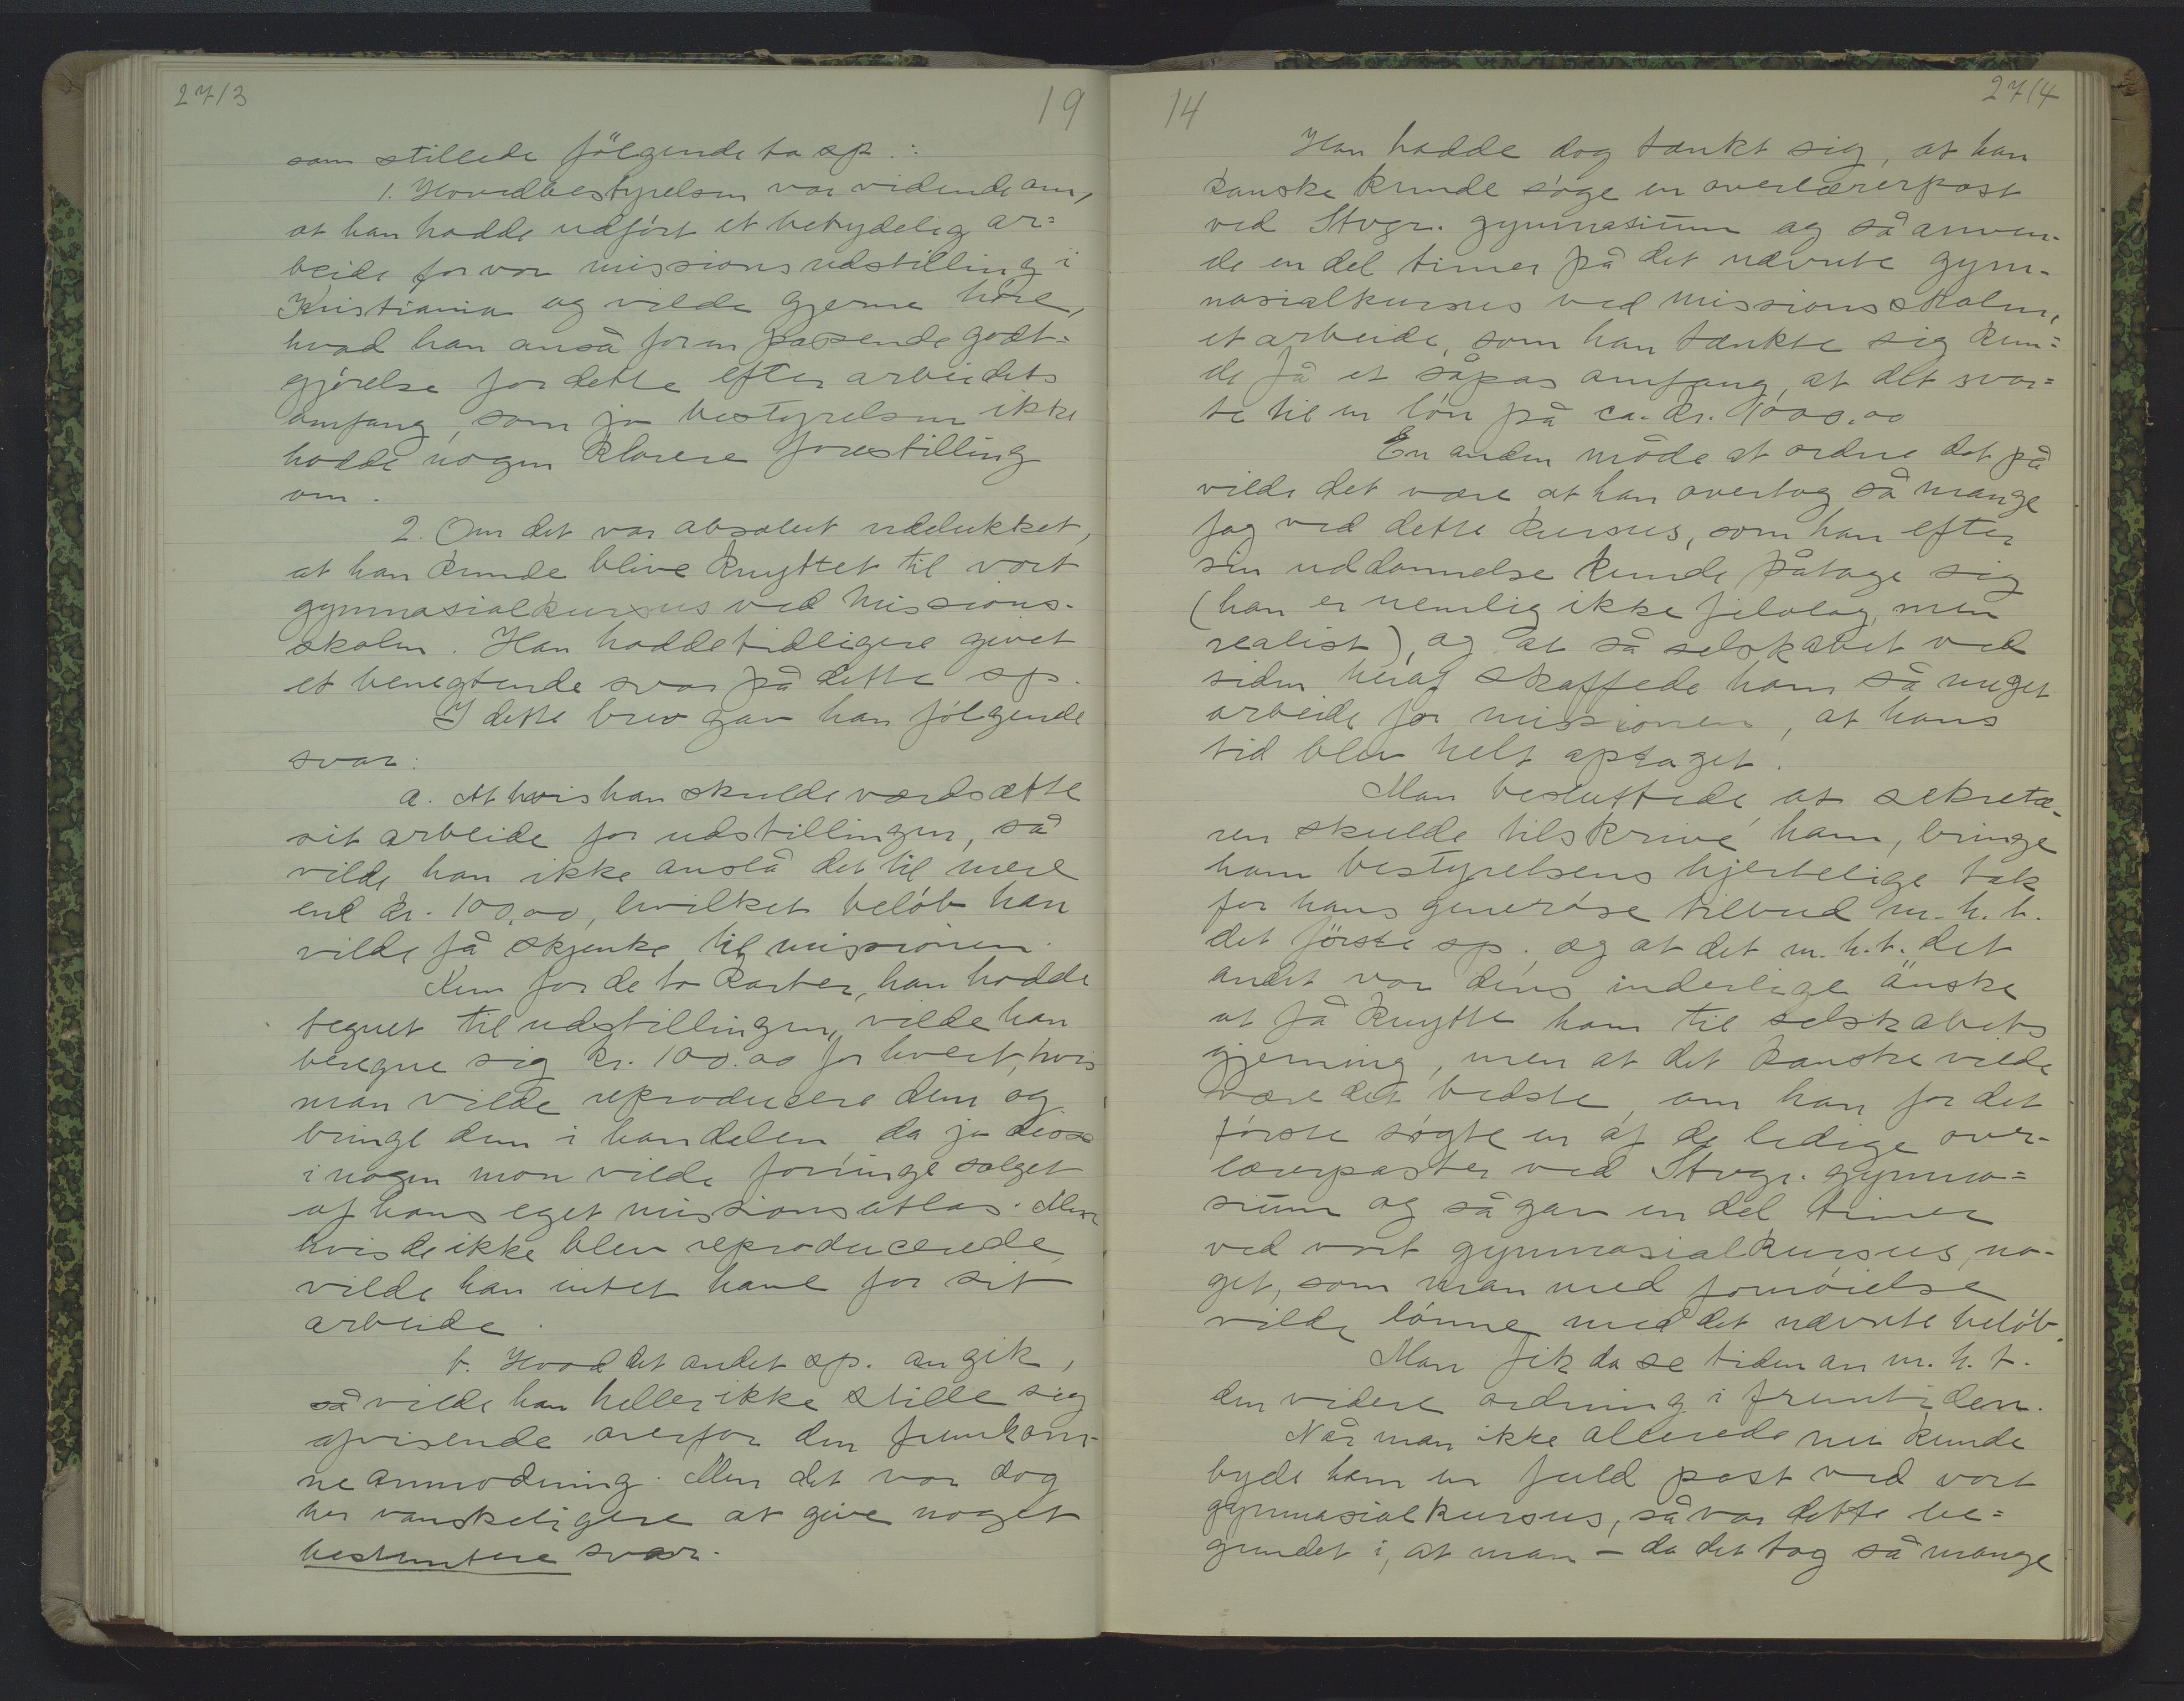 27/3
19
som stillede følgende to sp.:
1. Hovedbestyrelsen var vidende om,
at han hadde udført et betydelig ar=
beide for vor missionsudstilling i
Kristiania og vilde gjerne høre,
hvad han anså for en passende godt=
gjørelse for dette efter arbeidets
omfang, som jo bestyrelsen ikke
hadde nogen klarere forestilling
om.
2. Om det var absolut udelukket,
at han kunde blive knyttet til vort
gymnasialkursus ved Missions-
skolen. Han hadde tidligere givet
et benegtende svar på dette sp.
I dette brev gav han følgende
svar:
a. At hvis han skulde værdsætte
sit arbeide for udstillingen, så
vilde han ikke anslå det til mere
end kr. 100,00, hvilket beløb han
vilde få skjenke til missionen.
Kun for de to karter, han hadde
tegnet til udstillingen, vilde han
beregne sig kr. 100.00 for hvert, hvis
man vilde reproducere dem og
bringe dem i handelen da jo disse
i nogen mon vilde forringe salget
af hans eget missionsatlas. Men
hvis de ikke blev reproducerede,
vilde han intet have for sit
arbeide.
b. Hvad det andet sp. angik,
så vilde han heller ikke stille sig
afvisende overfor den fremkom-
ne anmodning. Men det var dog
her vanskeligere at give noget
bestemtere svar.
14
27/4
Han hadde dog tænkt sig, at han
kanske kunde søge en overlærerpost
ved Stvgr. gymnasium og så anven-
de en del timer på det nævnte gym-
nasialkursus ved missionsskolen,
et arbeide, som han tænkte sig kun=
de få et såpas omfang, at det svar=
te til en løn på ca. kr. 1000.00
En anden måde at ordne det på
vilde det være at han overtog så mange
fag ved dette kursus, som han efter
sin uddannelse kunde påtage sig
(han er nemlig ikke filolog, men
realist), og at så selskabet ved
siden heraf skaffede ham så meget
arbeide for missionen, at hans
tid blev helt optaget.
Man besluttede at sekretæ-
ren skulde tilskrive ham, bringe
ham bestyrelsens hjertelige tak
for hans generøse tilbud m.h.t.
det første sp., og at det m.h.t. det
andet var dens inderlige ønske
at få knytte ham til selskabets
gjerning, men at det kanske vilde
være det bedste, om han for det
første søgte en af de ledige over-
lærerposter ved Stvgr. gymna=
sium og så gav en del timer
ved vort gymnasialkursus, no-
get, som man med fornøielse
vilde lønne med det nævnte beløb.
Man fik da se tiden an m.h.t.
den videre ordning i fremtiden.
Når man ikke allerede nu kunde
byde ham en fuld post ved vort
gymnasialkursus, så var dette be=
grundet i, at man – da det tog så mange